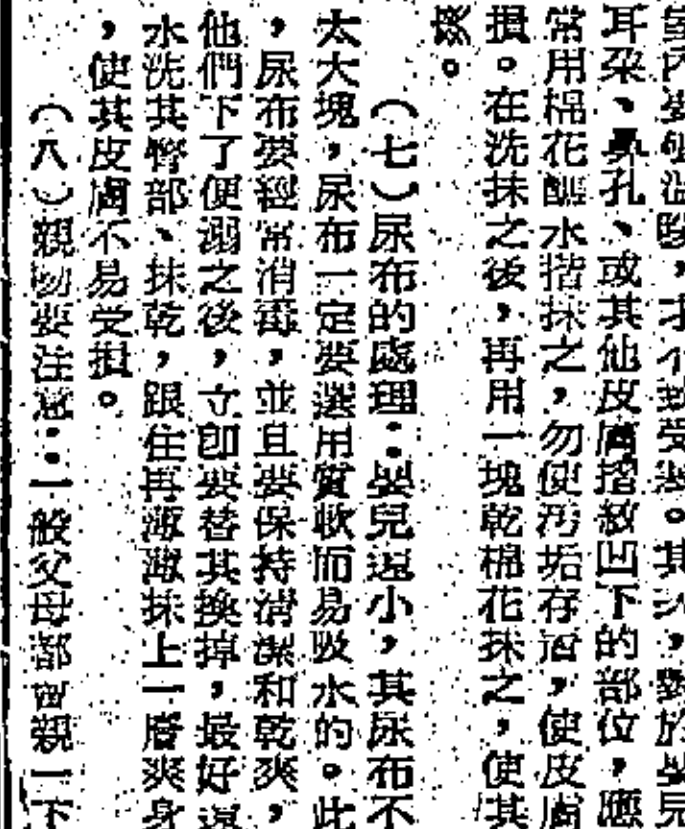 室內要溫暖,才不致受寒。其次,對於嬰兒
耳朶、鼻孔、或其他皮膚摺紋凹下的部位,應
常用棉花醮水揩抹之,勿使汚垢存留,使皮膚
損。在洗抹之後,再用一塊乾棉花抹之,使其
。
(七)尿布的處理:嬰兒還小,其尿布不
太大塊,尿布一定要選用質軟而易吸水的。此
,尿布要經常消毒,並且要保持清潔和乾爽,
他們下了便溺之後,立卽要替其換掉,最好還
水洗其臀部、抹乾,跟住再薄薄抹上一層爽身
,使其皮膚不易受損。
(八)親吻要注意:一般父母都會親一下